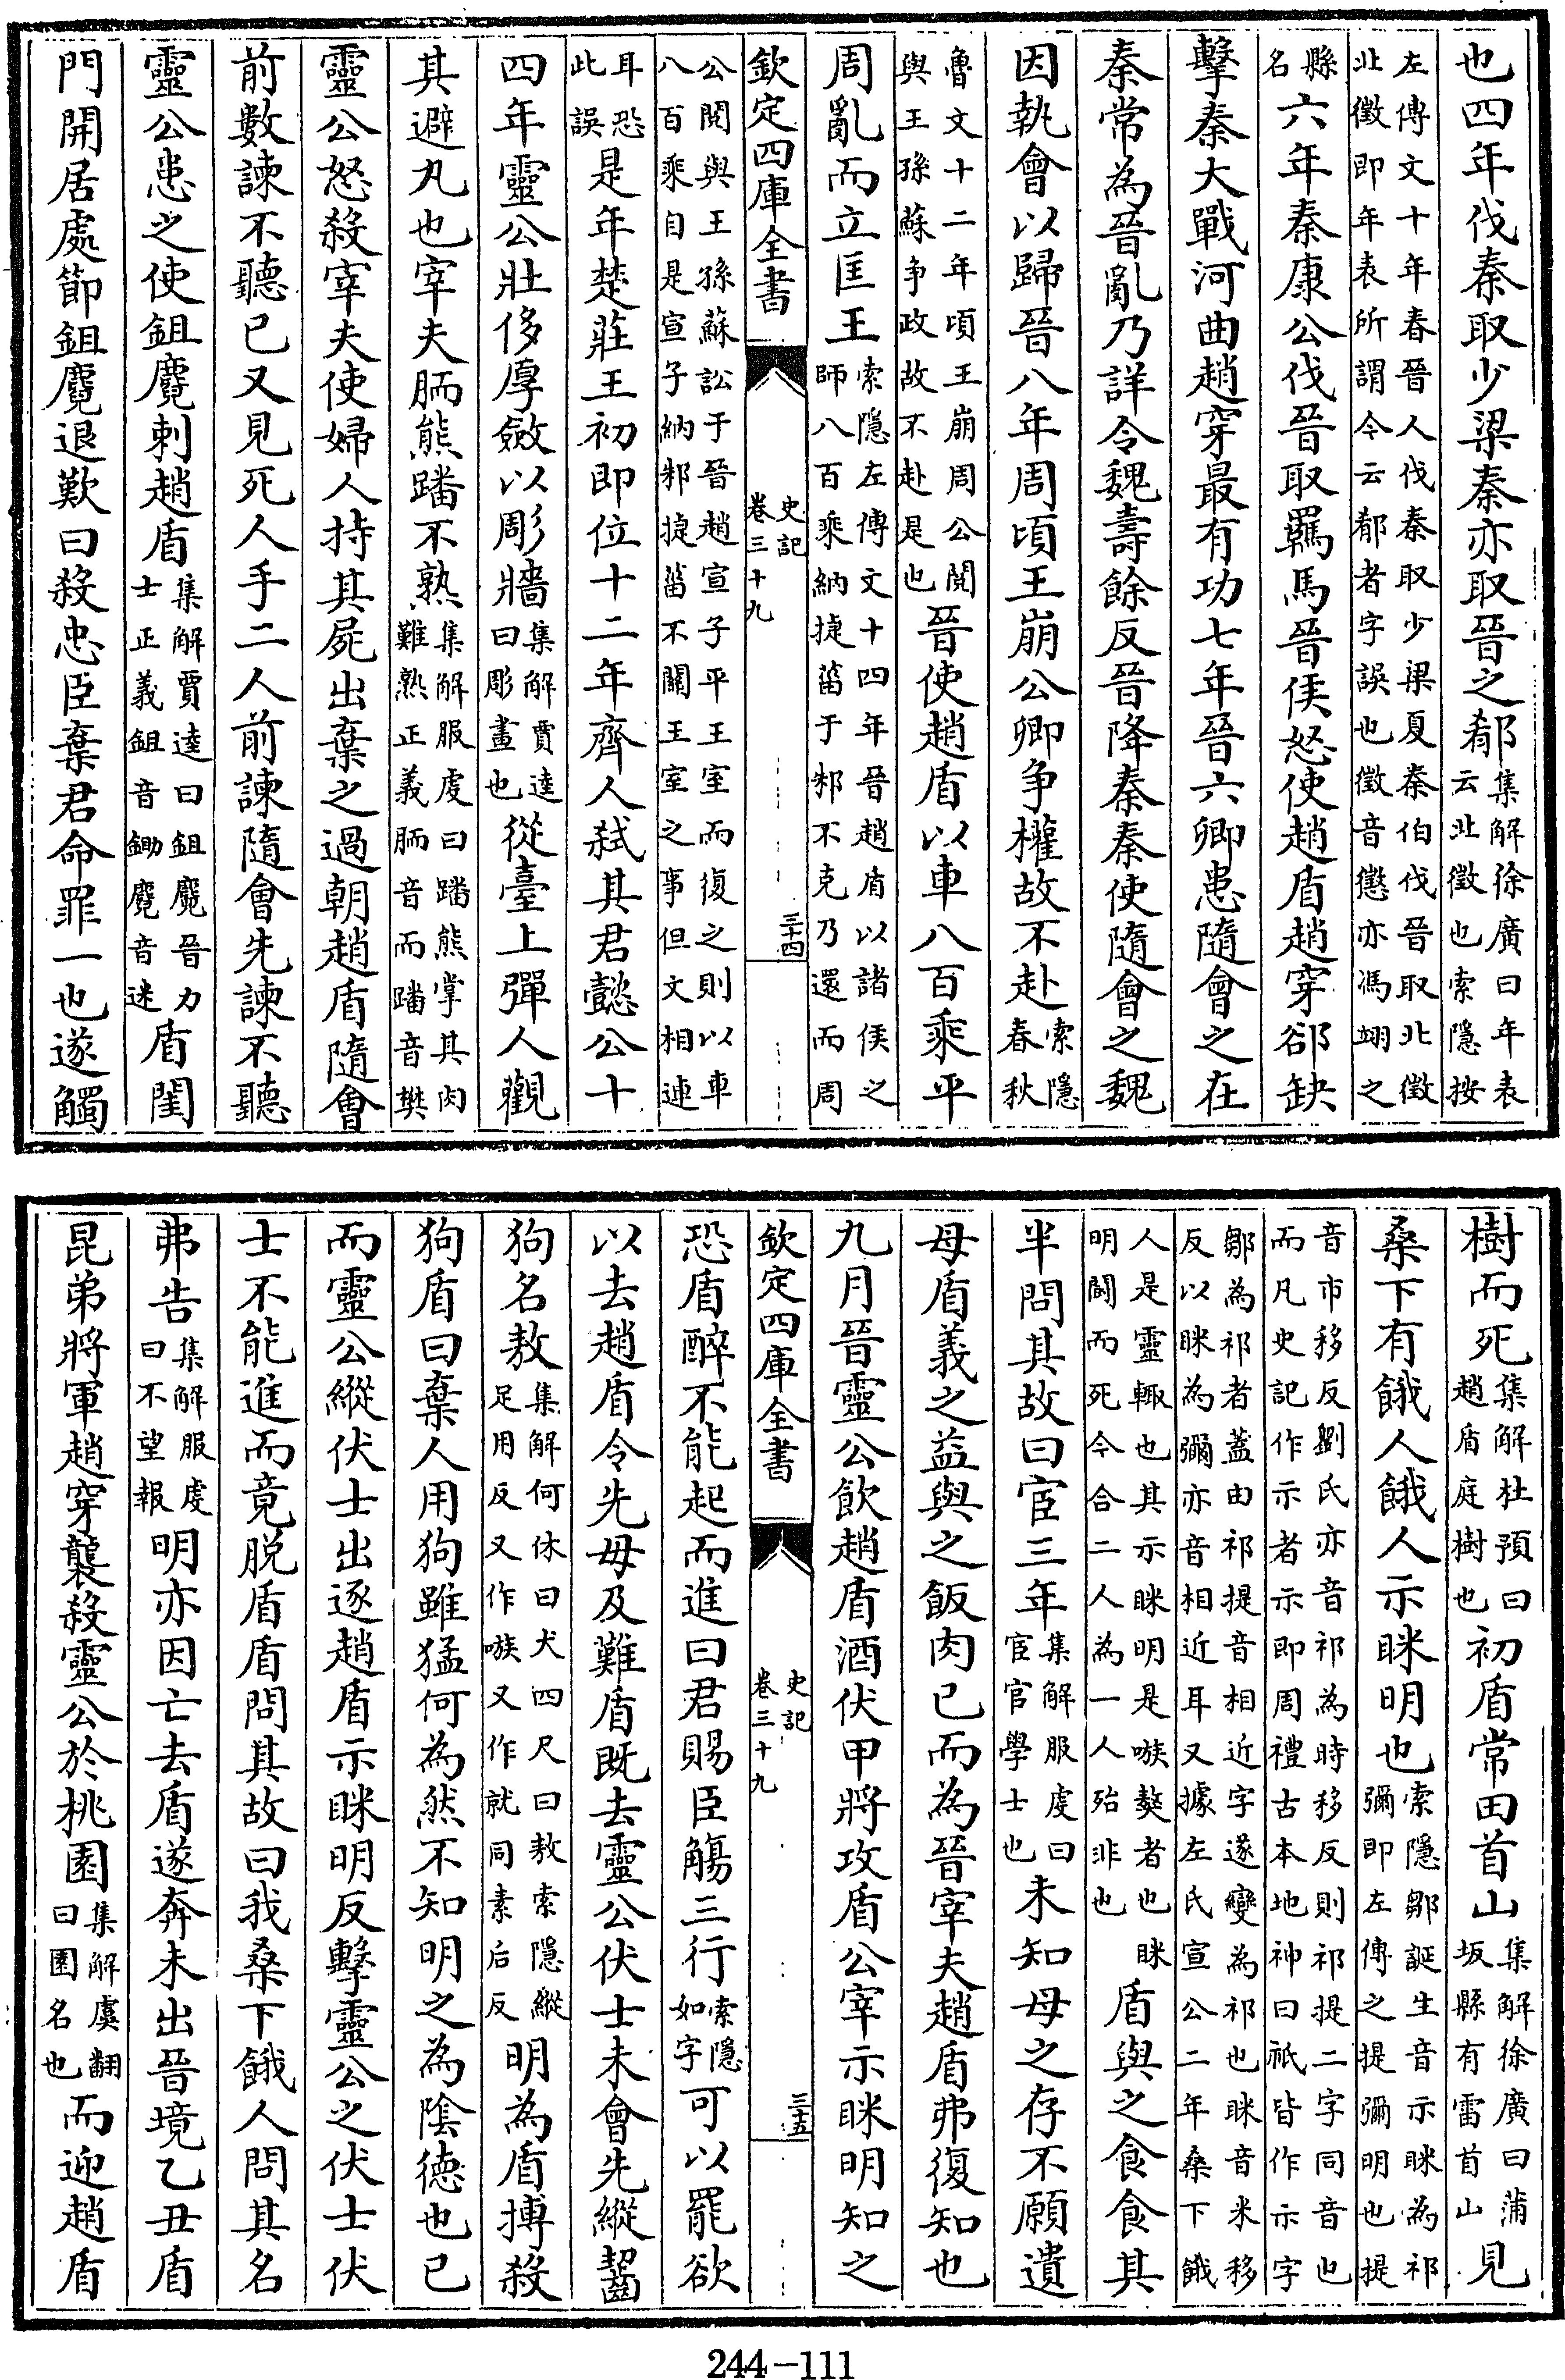 也四年伐秦取少梁秦亦取晉之郩集解徐廣曰年表云北徵也索隱按
左傳文十年春晉人伐秦取少梁夏秦伯伐晉取北徵北徵即年表所謂今云郩者字誤也徵音懲亦馮翊之
縣名六年秦康公伐晉取羈馬晉侯怒使趙盾趙穿郤缺
擊秦大戰河曲趙穿最有功七年晉六卿患隨會之在
秦常為晉亂乃詳令魏壽餘反晉降秦秦使隨會之魏
因執會以歸晉八年周頃王崩公卿争權故不赴索隱春秋
魯文十二年頃王崩周公閱與王孫蘇争政故不赴是也晉使趙盾以車八百乘平
周亂而立匡王索隱左傳文十四年晉趙盾以諸侯之師八百乘納捷菑于邾不克乃還而周
欽定四庫全書 史記卷三十九 三十四
公閱與王孫蘇訟于晉趙宣子平王室而復之則以車八百乘自是宣子納邾捷菑不關王室之事但文相連
耳恐此誤是年楚莊王初即位十二年齊人弑其君懿公十
四年靈公壯侈厚斂以彫牆集解賈逵曰彫畫也從臺上彈人觀
其避丸也宰夫胹熊蹯不熟集解服虔曰蹯熊掌其肉難熟正義胹音而蹯音樊
靈公怒殺宰夫使婦人持其屍出棄之過朝趙盾隨會
前數諫不聽已又見死人手二人前諫隨會先諫不聽
靈公患之使鉏麑刺趙盾集解賈逵曰鉏麑晉力士正義鉏音鋤麑音迷盾閨
門開居處節鉏麑退歎曰殺忠臣棄君命罪一也遂觸
樹而死集解杜預曰趙盾庭樹也初盾常田首山集解徐廣曰蒲坂縣有雷首山見
桑下有餓人餓人示眯明也索隱鄒誕生音示眯為祁彌即左傳之提彌明也提
音市移反劉氏亦音祁為時移反則祁提二字同音也而凡史記作示者示即周禮古本地神曰祇皆作示字
鄒為祁者蓋由祁提音相近字遂變為祁也眯音米移反以眯為彌亦音相近耳又據左氏宣公二年桑下餓
人是靈輒也其示眯明是嗾獒者也眯明鬭而死今合二人為一人殆非也盾與之食食其
半問其故曰宦三年集解服虔曰宦官學士也未知母之存不願遺
母盾義之益與之飯肉已而為晉宰夫趙盾弗復知也
九月晉靈公飲趙盾酒伏甲將攻盾公宰示眯明知之
欽定四庫全書 史記卷三十九 三十五
恐盾醉不能起而進曰君賜臣觴三行索隱如字可以罷欲
以去趙盾令先毋及難盾既去靈公伏士未會先縱齧
狗名敖集解何休曰犬四尺曰敖索隱縱足用反又作嗾又作就同素后反明為盾搏殺
狗盾曰棄人用狗雖猛何為然不知明之為陰德也已
而靈公縱伏士出逐趙盾示眯明反擊靈公之伏士伏
士不能進而竟脱盾盾問其故曰我桑下餓人問其名
弗告集解服虔曰不望報明亦因亡去盾遂奔未出晉境乙丑盾
昆弟將軍趙穿襲殺靈公於桃園集解虞翻曰園名也而迎趙盾
244-111